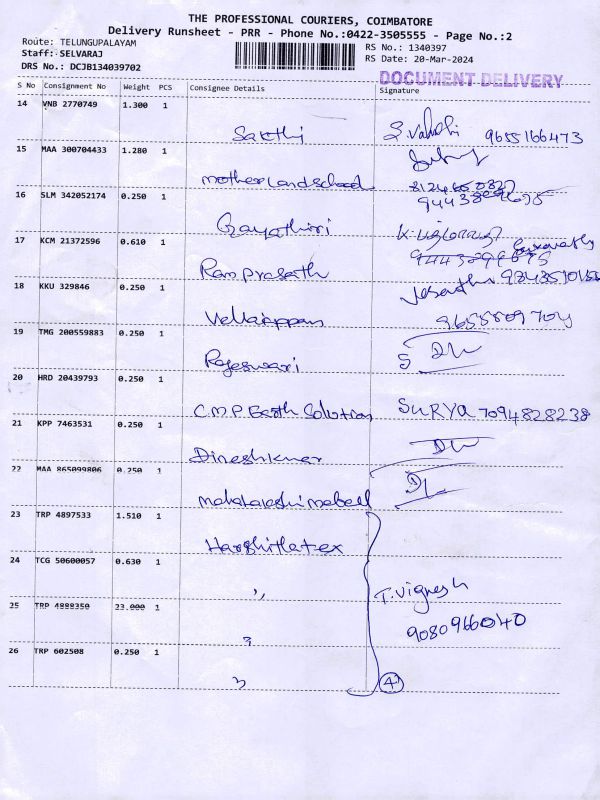 THE PROFESSIONAL COURIERS, COIMBATORE
Delivery Runsheet - PRR - Phone No.:0422-3505555 - Page No.:2
Route: TELUNGUPALAYAM
RS No.: 1340397
Staff: SELVARAJ
RS Date: 20-Mar-2024
DRS No.: DCJB134039702
DOCUMENT DELIVERY
S No Consignment No Weight PCS Consignee Details Signature
14 VNB 2770749 1.300 1
Sakthi 9655166473
15 MAA 300704433 1.280 1
motherland school
16 SLM 342052174 0.250 1
Gayathiri
17 KCM 21372596 0.610 1
Ram prasath
18 KKU 329846 0.250 1
Vellaiappan 9655809704
19 TMG 200559883 0.250 1
Rajeswari
20 HRD 20439793 0.250 1
C.M.P Earth Solution SURYA 7094828238
21 KPP 7463531 0.250 1
Dineshkumar
22 MAA 865099806 0.250 1
23 TRP 4897533 1.510 1
Harshitlatex
24 TCG 50600057 0.630 1
,, T. Vignesh
25 TRP 4888350 23.000 1
9080966040
26 TRP 602508 0.250 1
4